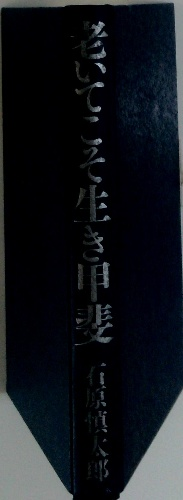 老いてこそ生き甲斐
石原慎太郎